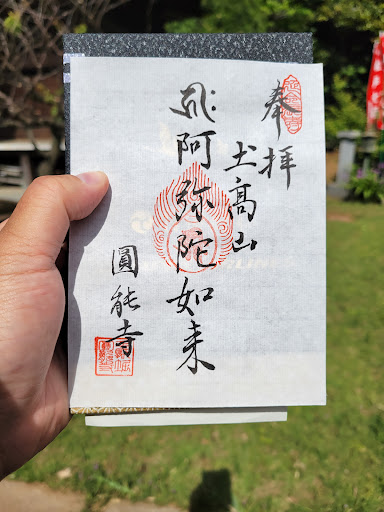 奉拝
土高山
阿弥陀如来
圓能寺